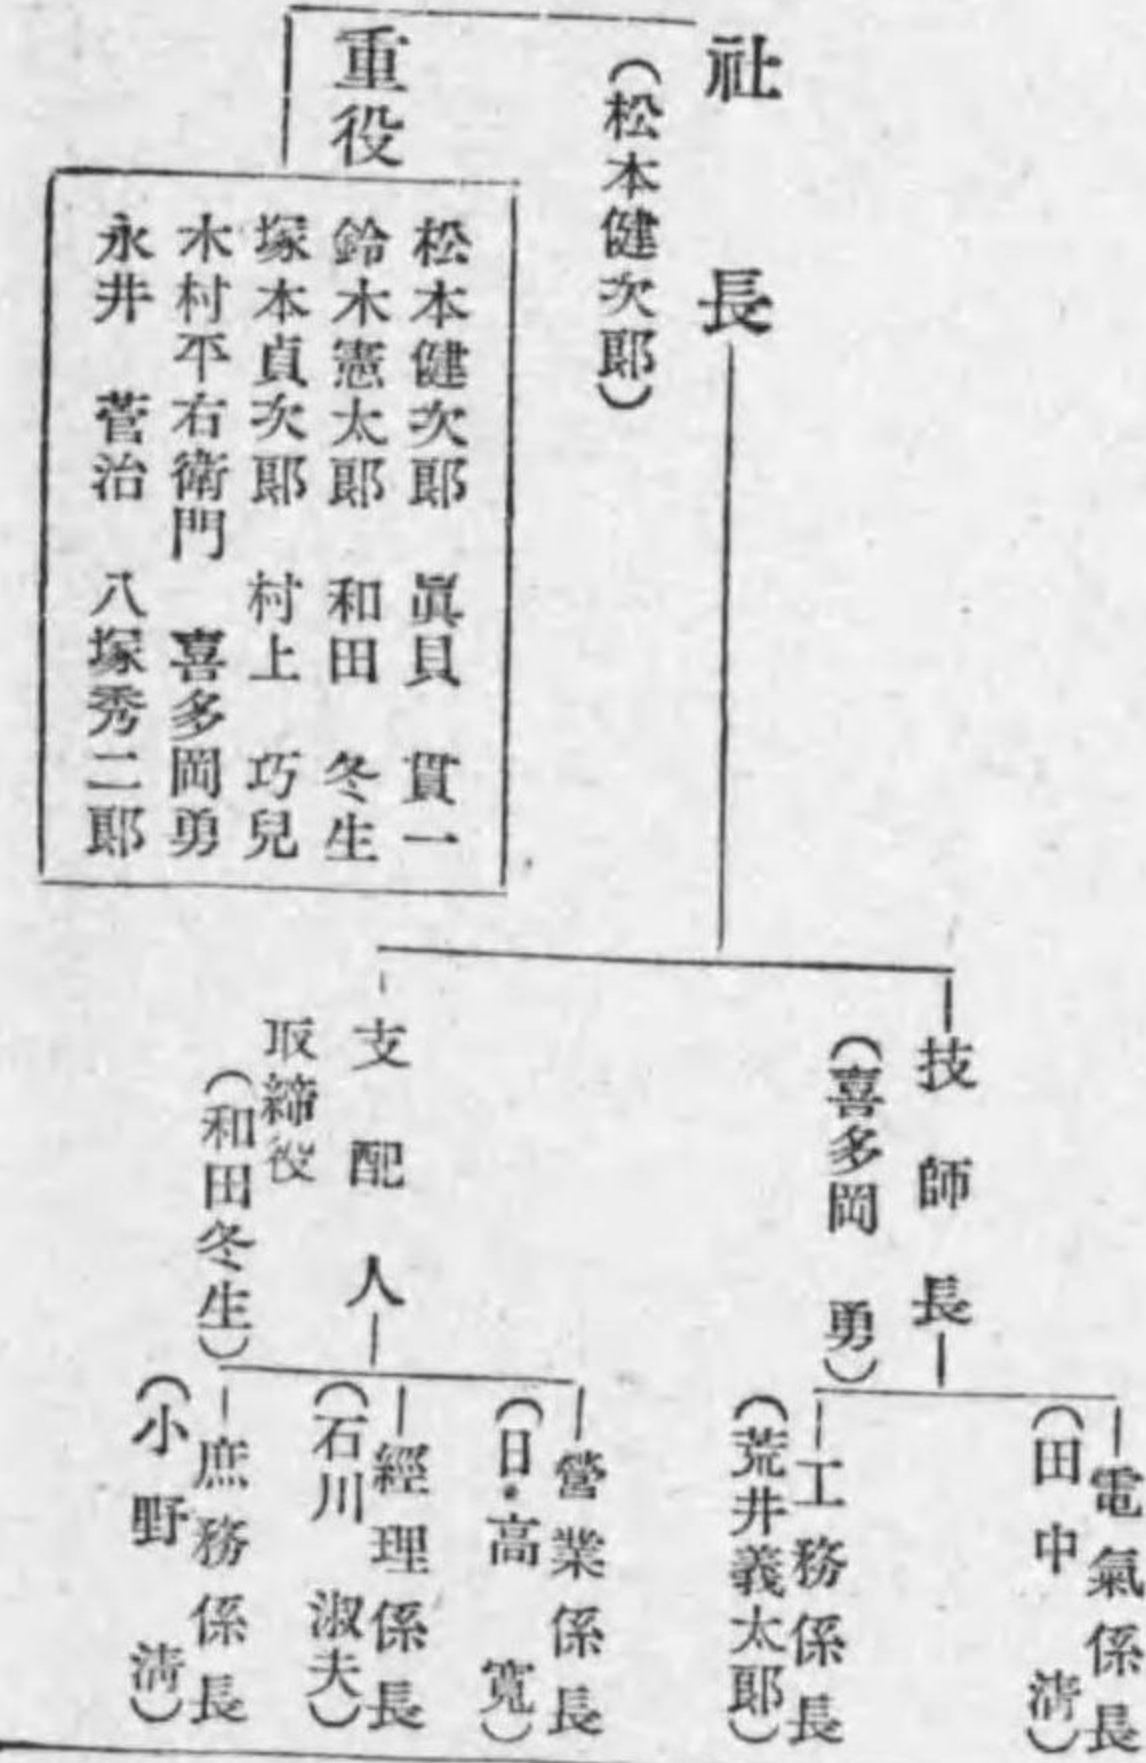 社長
（松本健次郎）
重役
松本健次郎　眞貝　貫一
鈴木憲太郎　和田　冬生
塚本貞次郎　村上　巧兒
木村平右衛門　喜多岡勇
永井　菅治　八塚秀二郎
技師長
（喜多岡　勇）
電氣係長
（田中　清）
工務係長
（荒井義太郎）
支配人
取締役
（和田冬生）
營業係長
（日高　寬）
經理係長
（石川　淑夫）
庶務係長
（小野　清）